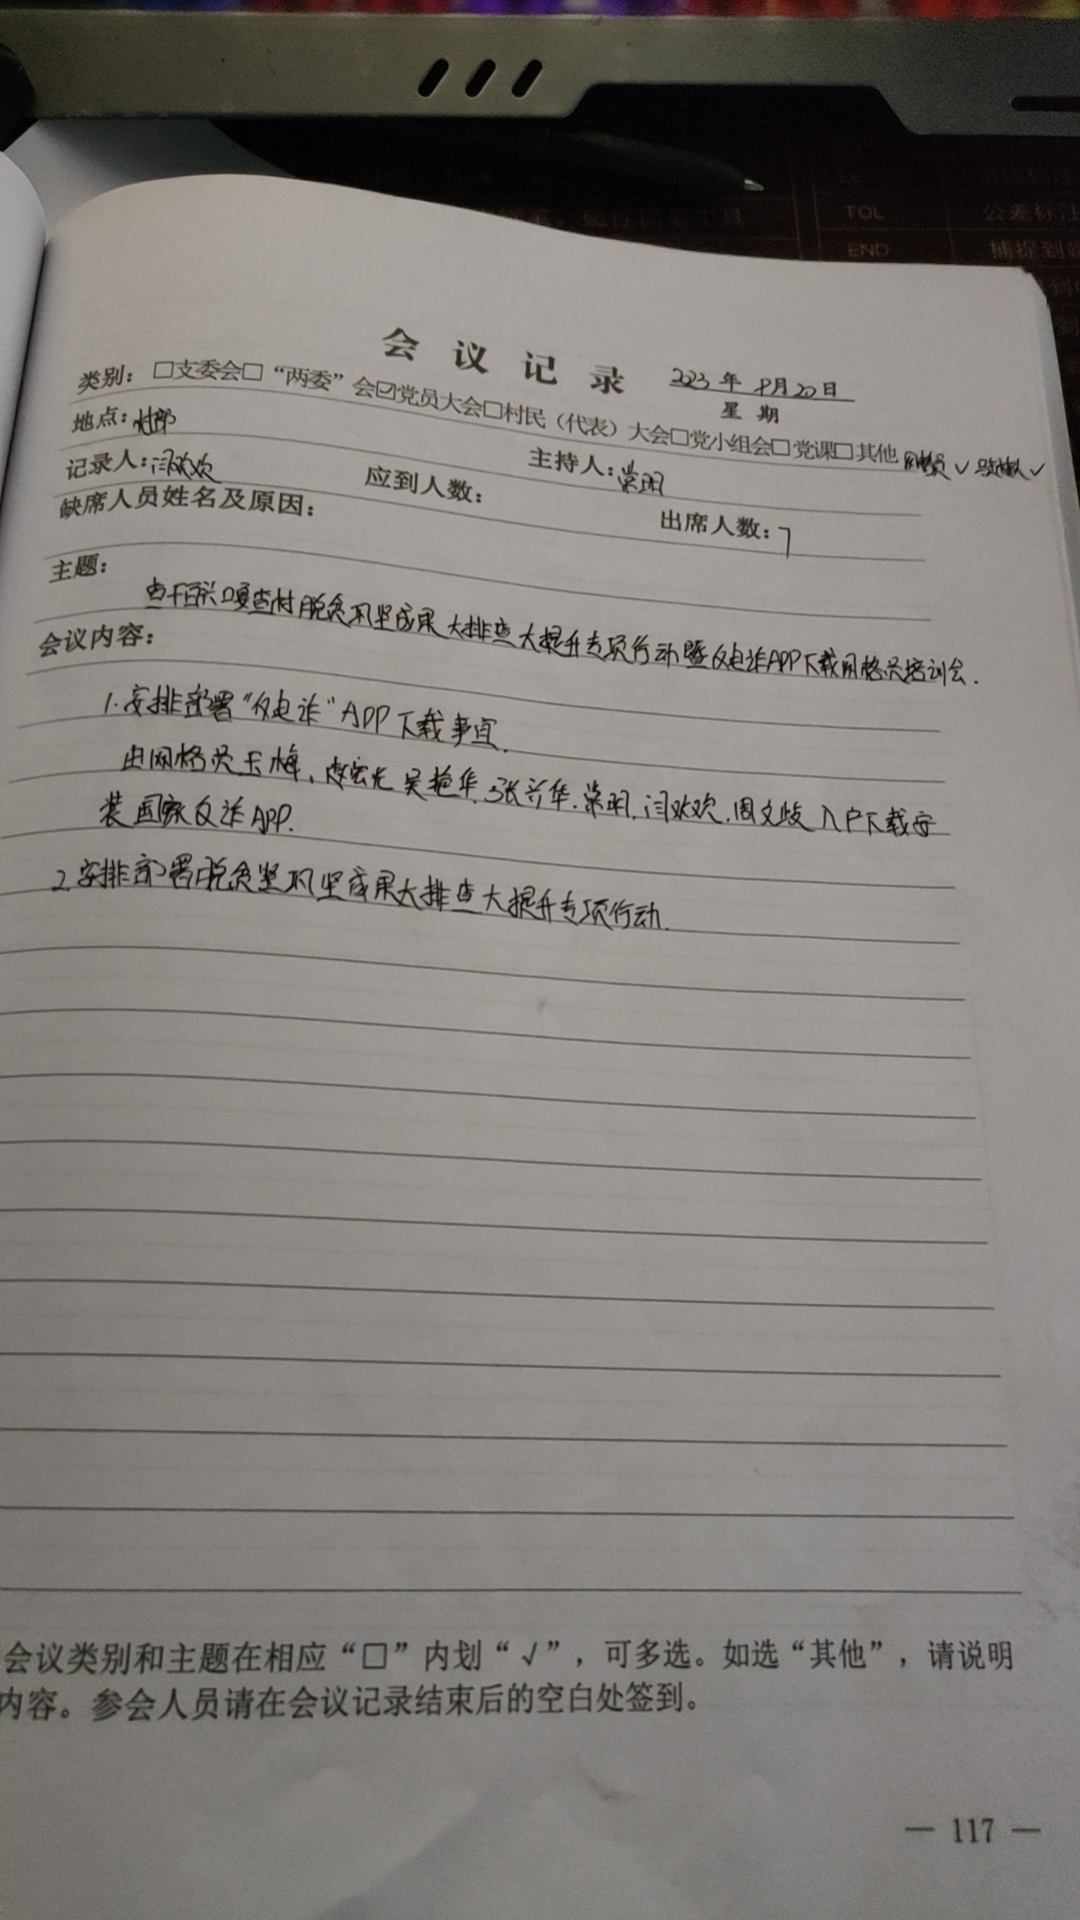 TOL 公差标注
END 捕捉到端
会议记录
2023年8月20日
星期
类别：□支委会□“两委”会☑党员大会□村民（代表）大会□党小组会□党课□其他 网格员✓
地点：村部
主持人：常明
记录人：闫欢欢 应到人数： 出席人数：7
缺席人员姓名及原因：
主题：
村脱贫巩坚成果大排查大提升专项行动暨反电诈APP下载网格员培训会.
会议内容：
1.安排部署“反电诈”APP下载事宜.
由网格员玉梅、吴艳华.张兰华.常明.闫欢欢.周文 入户下载安
装国家反诈APP.
2.安排部署脱贫坚巩坚成果大排查大提升专项行动.
会议类别和主题在相应“□”内划“√”，可多选。如选“其他”，请说明
内容。参会人员请在会议记录结束后的空白处签到。
— 117 —